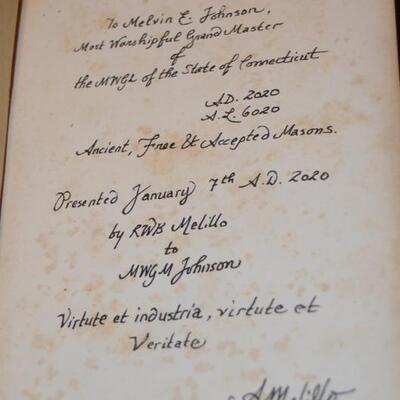 To Melvin E. Johnson,
Most Worshipful Grand Master
of
the MWGL of the State of Connecticut
A.D. 2020
A.L. 6020
Ancient, Free & Accepted Masons.
Presented January 7th A.D. 2020
by RWB Melillo
to
MWGM Johnson
Virtute et industria, virtute et
Veritate
Melillo